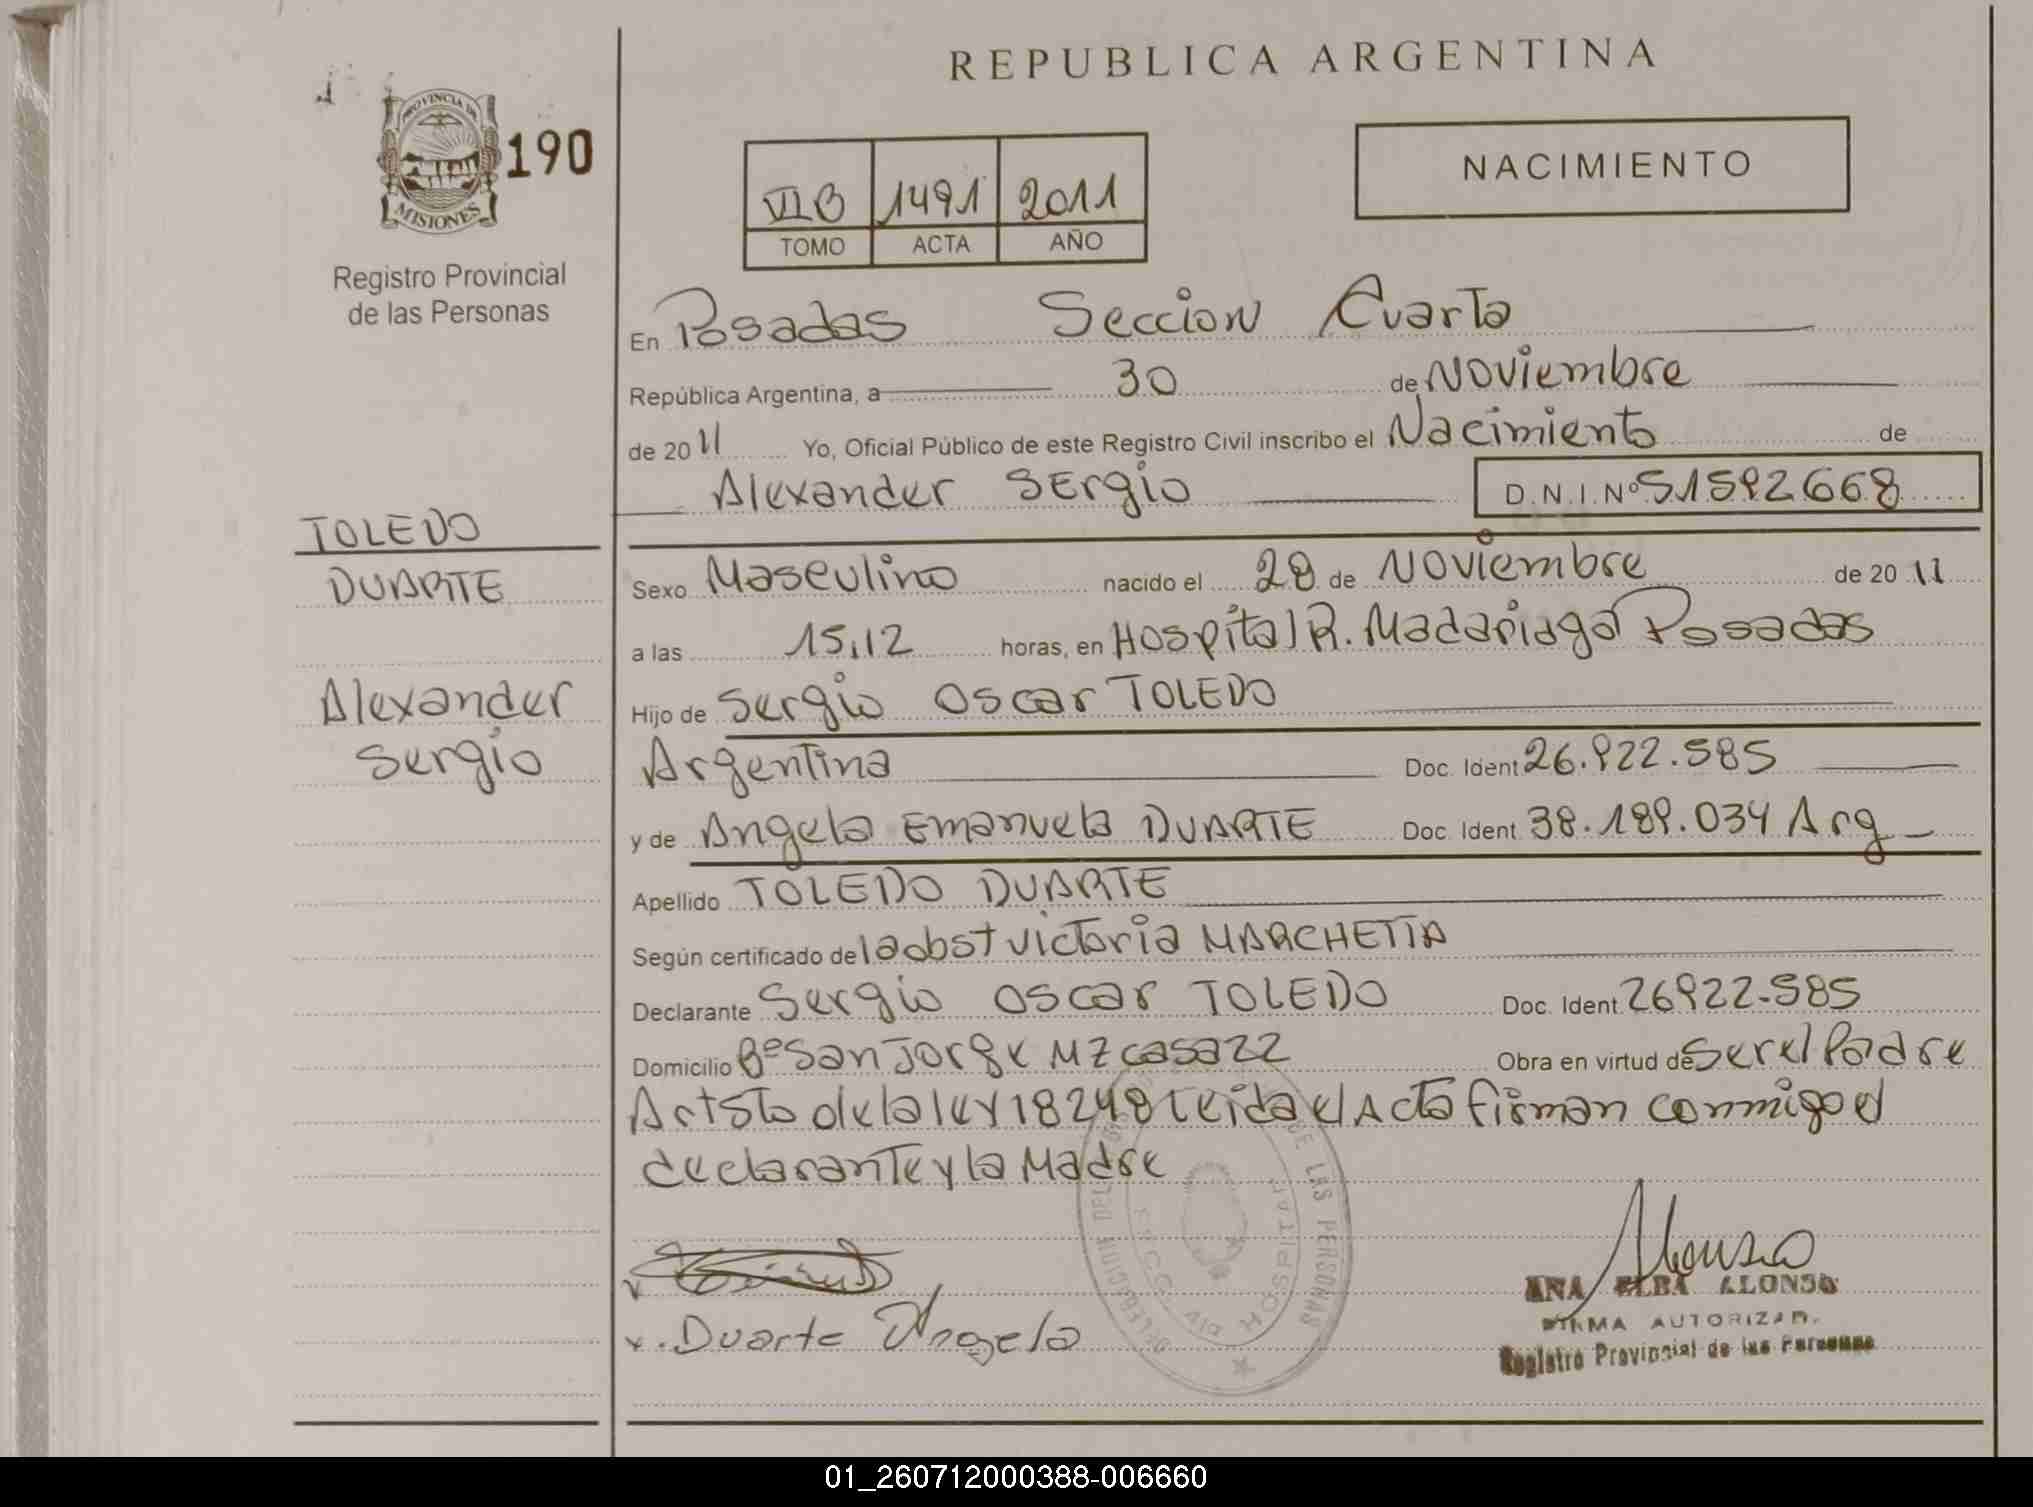 REPUBLICA ARGENTINA
PROVINCIA DE
MISIONES
190
Registro Provincial
de las Personas
NACIMIENTO
VI B 1491 2011
TOMO ACTA AÑO
En Posadas Seccion Cuarta
República Argentina, a 30 de Noviembre
de 2011 Yo, Oficial Público de este Registro Civil inscribo el Nacimiento de
Alexander Sergio D.N.I. Nº 51592668
TOLEDO
DUARTE
Alexander
Sergio
Sexo Masculino nacido el 28 de Noviembre de 2011
a las 15,12 horas, en Hospital R. Madariaga Posadas
Hijo de Sergio Oscar TOLEDO
Argentina Doc. Ident 26.922.585
y de Angela Emanuela DUARTE Doc. Ident. 38.189.034 Arg
Apellido TOLEDO DUARTE
Según certificado de la obst Victoria MARCHETTA
Declarante Sergio Oscar TOLEDO Doc. Ident. 26922.585
Domicilio Bº San Jorge MZ casa 22 Obra en virtud de Ser el Padre
Art 5to de la ley 18248 Leida el Acta firman conmigo el
declarante y la Madre
x. Duarte Angela
DE LAS PERSONAS
HOSPITAL
Alonso
ANA ELBA ALONSO
FIRMA AUTORIZAD.
Registro Provincial de las Personas
01_260712000388-006660